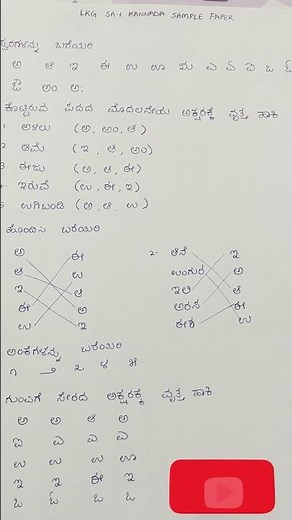 LKG SA-1 KANNADA SAMPLE PAPER
ಸ್ವರಗಳನ್ನು ಬರೆಯಿರಿ
ಅ ಆ ಇ ಈ ಉ ಊ ಋ ಎ ಏ ಐ ಒ ಓ
ಔ ಅಂ ಅಃ
ಕೊಟ್ಟಿರುವ ಪದದ ಮೊದಲನೇಯ ಅಕ್ಷರಕ್ಕೆ ವೃತ್ತ ಹಾಕಿ
1 ಅಳಲು (ಅ, ಅಂ, ಆ)
2 ಆಮೆ (ಇ, ಆ, ಅಂ)
3 ಈಜು (ಅ, ಆ, ಈ)
ಇರುವೆ (ಉ, ಈ, ಇ)
ಉಗಿಬಂಡಿ (ಅ, ಆ, ಉ)
ಹೊಂದಿಸಿ ಬರೆಯಿರಿ
ಅ ಈ 2. ಆನೆ ಇ
ಆ ಉ ಉಂಗುರ ಅ
ಇ ಆ ಇಲಿ ಆ
ಈ ಅ ಅರಸ ಈ
ಉ ಇ ಈಶ ಉ
ಅಂಕೆಗಳನ್ನು ಬರೆಯಿರಿ
೧ ೨ ೪ ೫
ಗುಂಪಿಗೆ ಸೇರದ ಅಕ್ಷರಕ್ಕೆ ವೃತ್ತ ಹಾಕಿ
ಅ ಅ ಆ ಅ
ಏ ಎ ಎ ಎ
ಉ ಉ ಉ ಊ
ಇ ಇ ಈ ಇ
ಒ ಓ ಒ ಒ